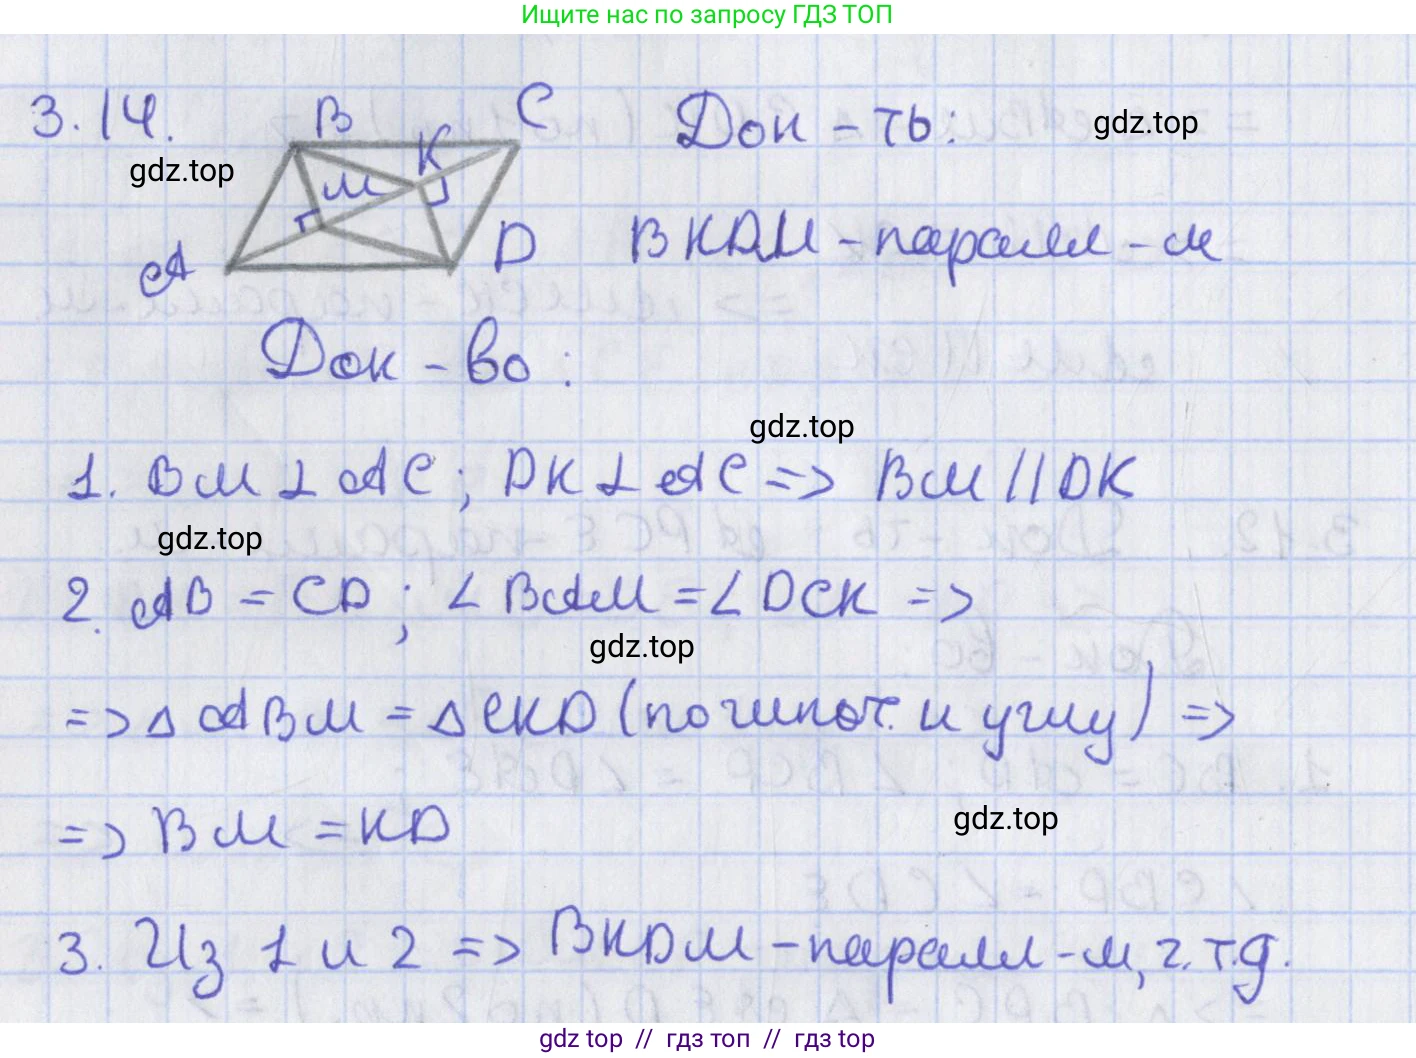 Ищите нас по запросу ГДЗ ТОП
3.14.
B C
K
M
A D
gdz.top
Док-ть:
gdz.top
BKDM - паралл-м
Док-во:
gdz.top
1. BM ⊥ AC; DK ⊥ AC => BM || DK
gdz.top
2. AB = CD; ∠BAM = ∠DCK =>
gdz.top
=> △ABM = △CKD (по гипот. и углу) =>
=> BM = KD
gdz.top
3. Из 1 и 2 => BKDM - паралл-м, ч.т.д.
gdz.top // гдз топ // гдз top